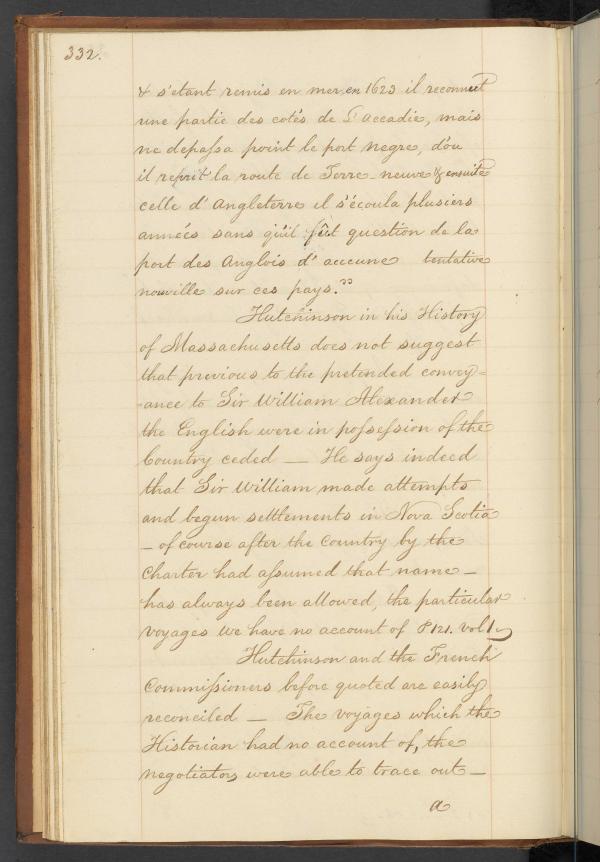 332.
& s'etant remis en mer, en 1623 il reconnut
une partie des cotés de L'accadie, mais
ne depassa point le port negre, d'ou
il reprit la route de Terre-neuve & ensuite
celle d'Angleterre il s'écoula plusiers
années sans qu'il fût question de la
port des Anglois d'aucune tentative
nouville sur ces pays."
Hutchinson in his History
of Massachusetts does not suggest
that previous to the pretended convey=
=ance to Sir William Alexander
the English were in possession of the
Country ceded — He says indeed
that Sir William made attempts
and begun settlements in Nova Scotia
– of course after the Country by the
Charter had assumed that name –
has always been allowed, the particular
voyages we have no account of P 121. vol 1.
Hutchinson and the French
Commissioners before quoted are easily
reconciled — The voyages which the
Historian had no account of, the
negotiators were able to trace out –
a